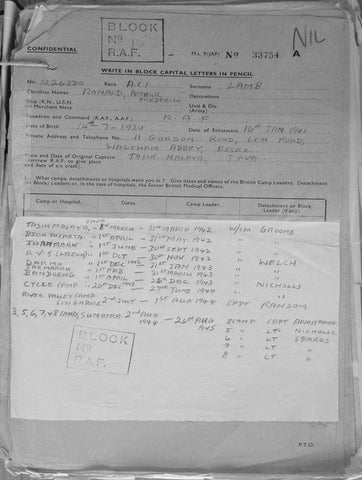 NIL
BLOCK
No
R.A.F.
CONFIDENTIAL
M.I. 9/JAP/ No 33754 A
WRITE IN BLOCK CAPITAL LETTERS IN PENCIL
No. 1226330 Rank AC1 Surname LAMB
Christian Names RONALD, ARTHUR FREDERICK Decorations
Ship (R.N., U.S.N. or Merchant Navy Unit & Div. (Army)
Squadron and Command (R.A.F., A.A.F.) R.A.F
Date of Birth 14-7-1920 Date of Enlistment 16th JAN 1941
Private Address and Telephone No. 11 GORDON ROAD, LEA ROAD,
WALTHAM ABBEY, ESSEX.
Place and Date of Original Capture TASIK MALAYA, JAVA.
(if aircrew R.A.F. to give place and date of a/c crash).
What camps, detachments or hospitals were you in? Give dates and names of the British Camp Leaders, Detachment or Block Leaders; or in the case of hospitals, the Senior British Medical Officers.
Camp or Hospital Location Dates Camp Leader. Detachment or Block Leader (if any)
JAVA
TASIK MALAYA, " 8th MARCH - 31st MARCH 1942 W/CDR GROOM
" 1st APRIL - 31st MAY 1942 "
" 1st JUNE - 30th SEPT 1942 "
" 1st OCT - 30th NOV 1942 "
" 1st DEC - 31st JAN 1943 " WELCH
" 1st FEB - 31st MARCH 1943 "
BANDOENG " 1st APRIL - 26th DEC 1943 " NICHOLLS
CYCLE CAMP " 26th DEC 1943 - 27th JUNE 1944 "
RIVER VALLEY CAMP
SINGAPORE 2nd JULY - 1st AUG 1944 CAPT RANSOM
3, 5, 6, 7, & 8 CAMPS, SUMATRA 2nd AUG 1944 - 26th AUG 1945 3 CAMP CAPT ARMSTRONG
5 " LT NICHOLLS
6 " LT SPARKS
7 " LT "
8 " LT "
BLOCK
No
R.A.F.
P.T.O.